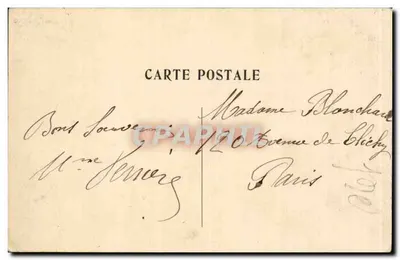 CARTE POSTALE
Bons Souvenirs
Mme
Madame Blanchard
120 Avenue de Clichy
Paris
CPAPHIL